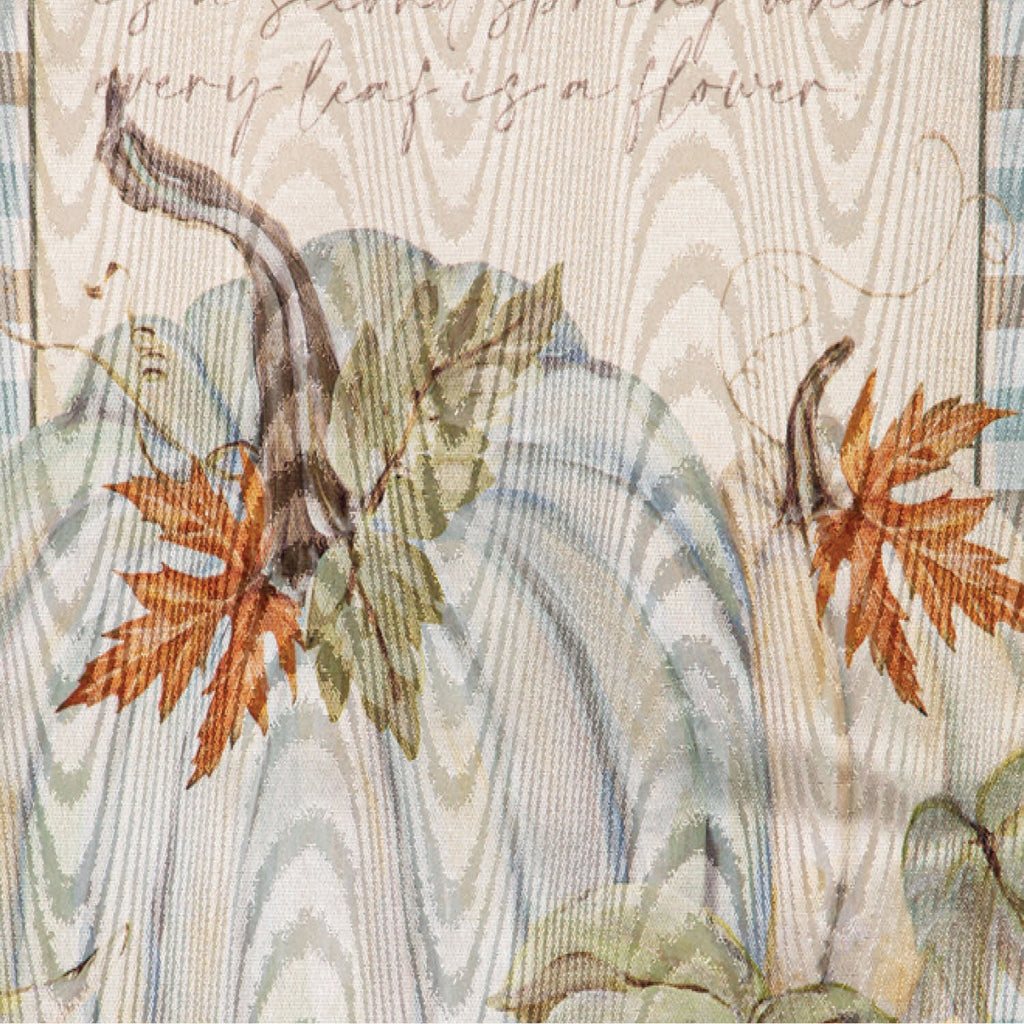 is a second spring when
every leaf is a flower.